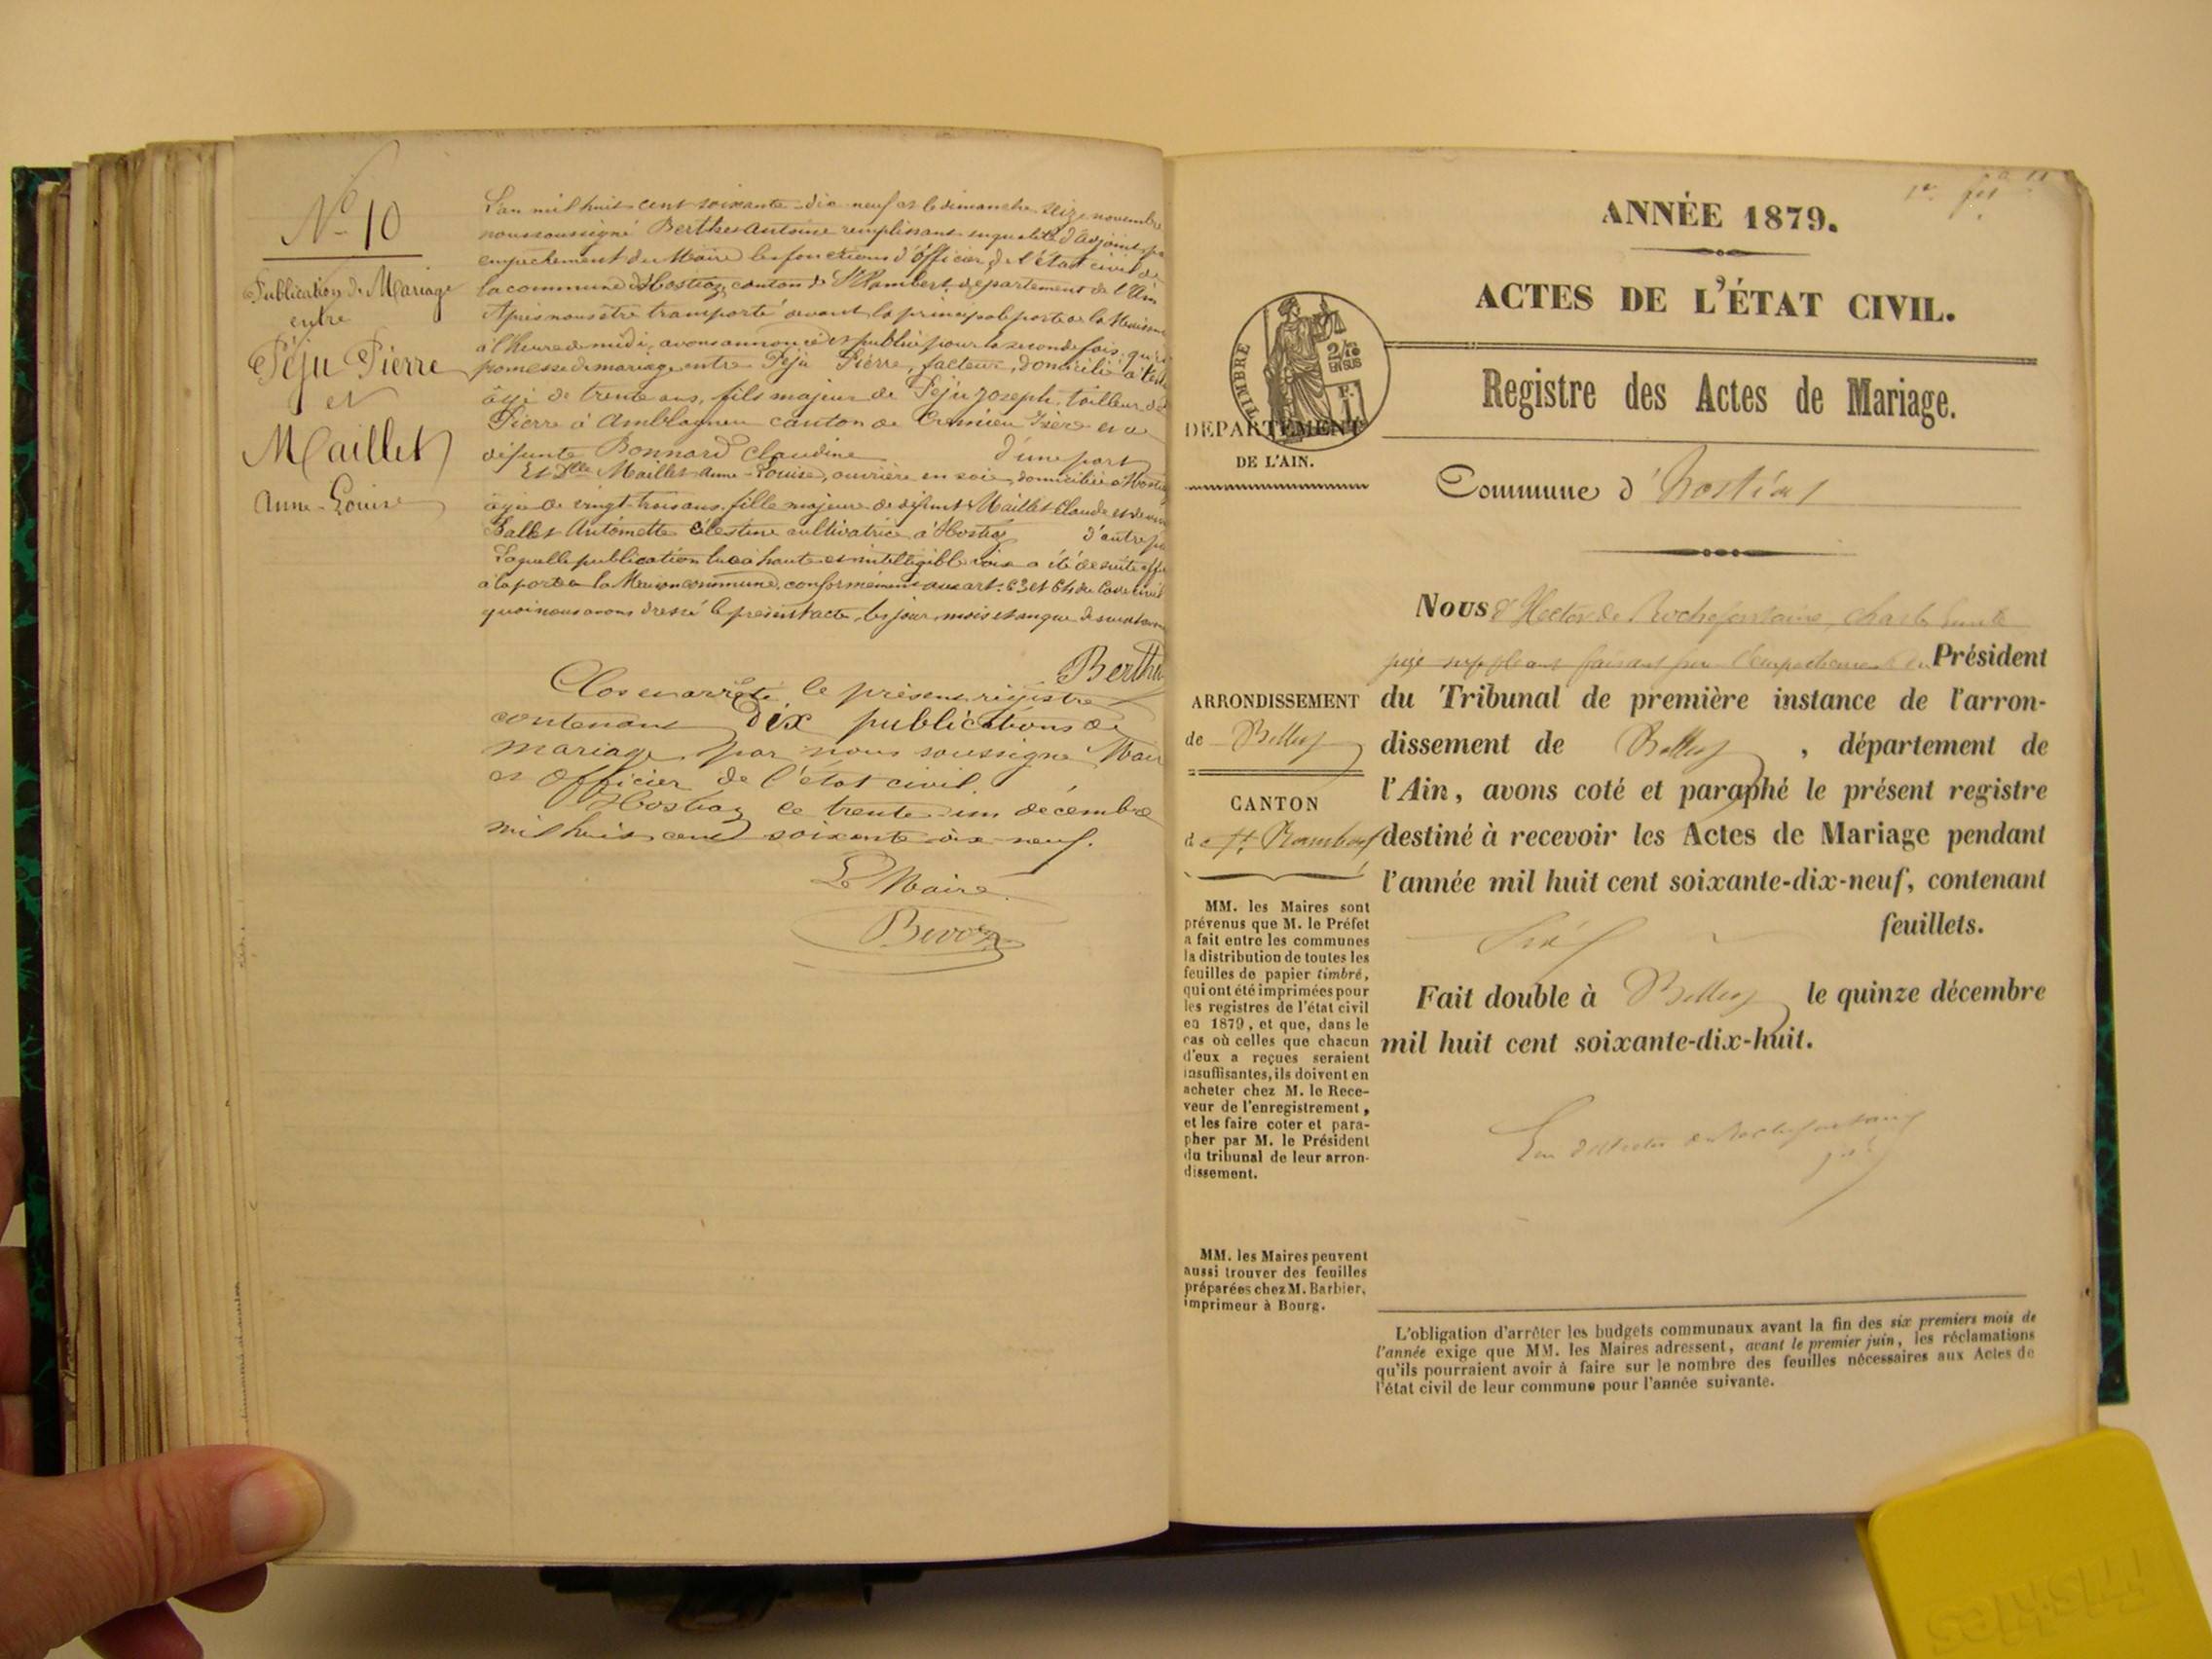 N° 10
Publication de Mariage
entre
Péju Pierre
et
Maillet
Anne-Louise
L'an mil huit cent soixante-dix neuf et le dimanche seize novembre
nous soussigné Berthet Antoine remplissant en qualité d'adjoint
empêchement du Maire les fonctions d'officier de l'état civil de
la commune d'Hostiaz canton de St Rambert département de l'Ain
Après nous être transporté devant la principale porte de la Maison
à l'heure de midi, avons annoncé et publié pour la seconde fois, qu'il
promesse de mariage entre Péju Pierre, facteur, domicilié à
âgé de trente ans, fils majeur de Péju Joseph, tailleur de
Pierre à Amblagneu canton de Crémieu Isère et de
défunte Bonnard Claudine d'une part
Et Dlle Maillet Anne-Louise, ouvrière en soie, domiciliée à Hostiaz
âgée de vingt-trois ans, fille majeure de défunt Maillet Claude et de
Ballet Antoinette Célestine cultivatrice à Hostiaz d'autre
Laquelle publication lue à haute et intelligible voix a été de suite
à la porte de la Maison commune, conformément aux art. 63 et 64 du Code civil
quoi nous avons dressé le présent acte, les jour, mois et an que dessus
Berthet
Clos et arrêté le présent registre
contenant dix publications de
mariage par nous soussigné Maire
et Officier de l'état civil.
Hostiaz le trente un décembre
mil huit cent soixante dix-neuf.
Le Maire
ANNÉE 1879.
ACTES DE L'ÉTAT CIVIL.
TIMBRE
2/10
EN SUS
Registre des Actes de Mariage.
DÉPARTEMENT
DE L'AIN.
Commune d'hostias
Nous d'Hector de Rochefontaine, Charles
juge suppléant faisant pour l'empêchement du Président
ARRONDISSEMENT
de Belley
CANTON
de St. Rambert
du Tribunal de première instance de l'arron-
dissement de Belley, département de
l'Ain, avons coté et paraphé le présent registre
destiné à recevoir les Actes de Mariage pendant
l'année mil huit cent soixante-dix-neuf, contenant
feuillets.
Fait double à Belley le quinze décembre
mil huit cent soixante-dix-huit.
MM. les Maires sont
prévenus que M. le Préfet
a fait entre les communes
la distribution de toutes les
feuilles de papier timbré,
qui ont été imprimées pour
les registres de l'état civil
en 1879, et que, dans le
cas où celles que chacun
d'eux a reçues seraient
insuffisantes, ils doivent en
acheter chez M. le Rece-
veur de l'enregistrement,
et les faire coter et para-
pher par M. le Président
du tribunal de leur arron-
dissement.
MM. les Maires peuvent
aussi trouver des feuilles
préparées chez M. Barbier,
imprimeur à Bourg.
L'obligation d'arrêter les budgets communaux avant la fin des six premiers mois de
l'année exige que MM. les Maires adressent, avant le premier juin, les réclamations
qu'ils pourraient avoir à faire sur le nombre des feuilles nécessaires aux Actes de
l'état civil de leur commune pour l'année suivante.
Friskies